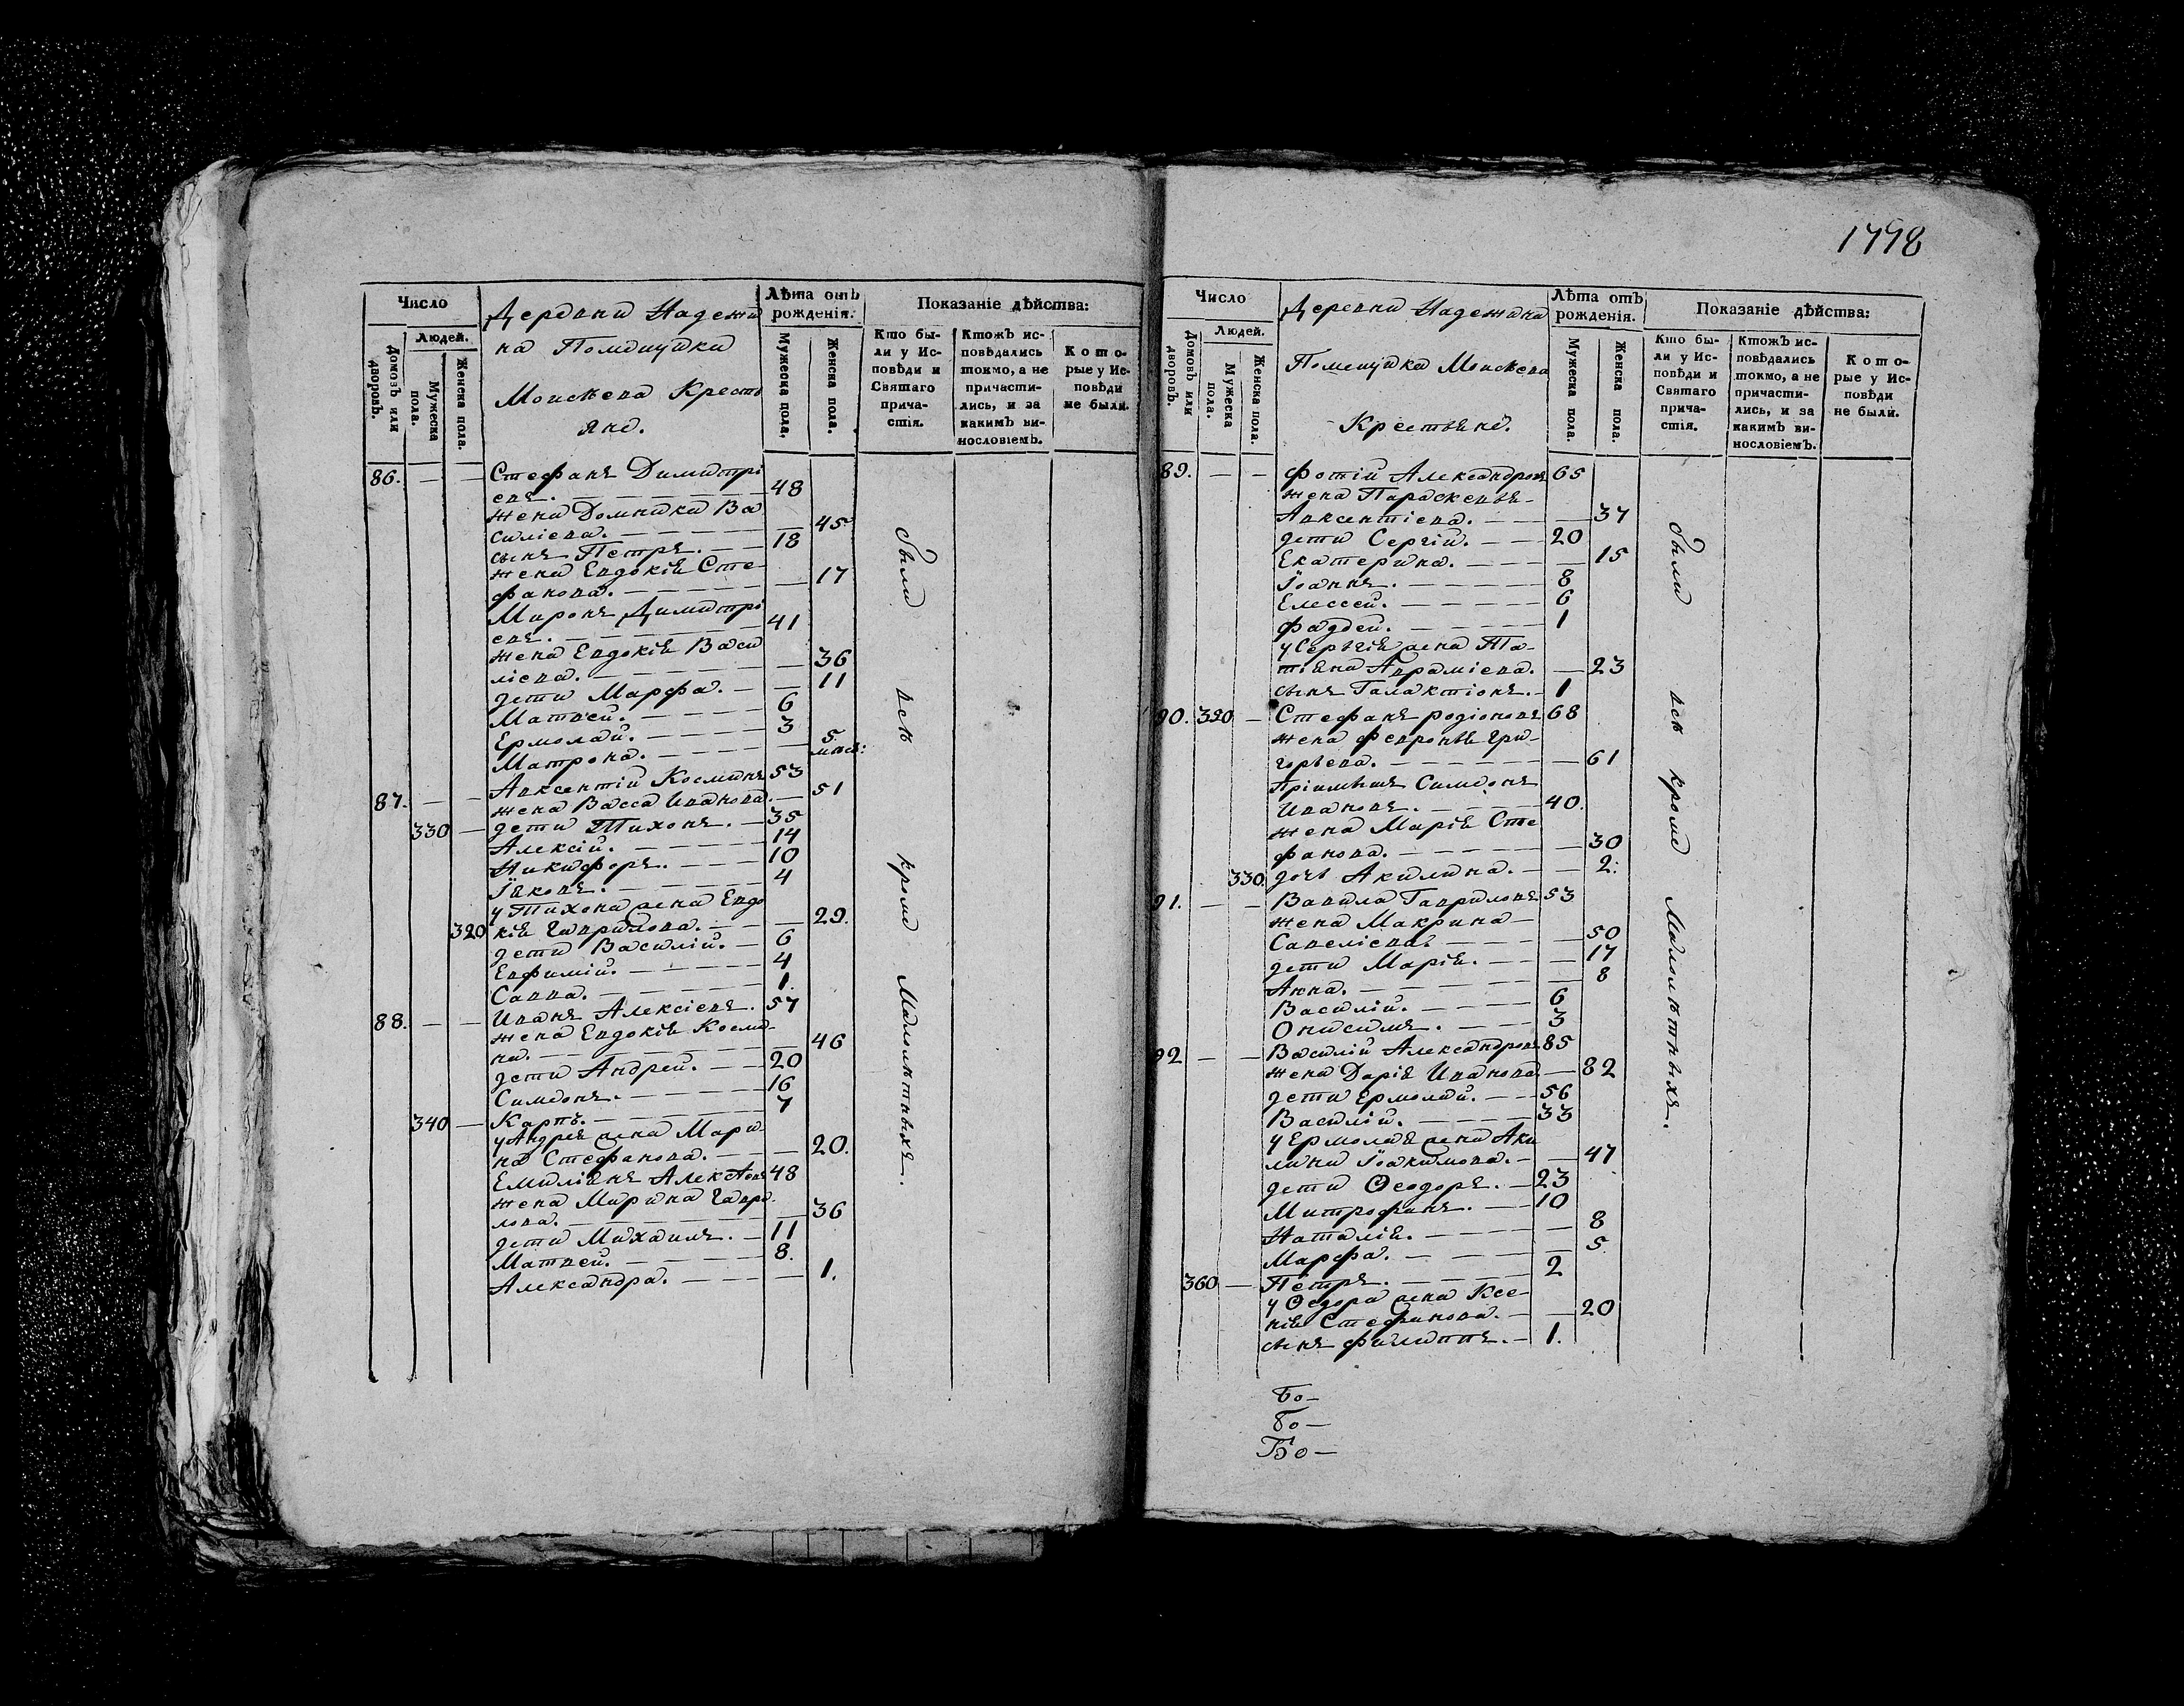 1798
Число
Людей.
Домовъ или дворовъ.
Мужеска пола.
Женска пола.
Деревни Надежи
на Помещика
Кресть
яне.
Лѣта отъ рожденія.
Мужеска пола.
Женска пола.
Показаніе дѣйства:
Кто бы-
ли у Ис-
повѣди и
Святаго
прича-
стія.
КтожЪ ис-
повѣдались
токмо, а не
причасти-
лись, и за
какимЪ ви-
нословіемЪ.
Кото-
рые у Ис-
повѣди
не были.
86. — — Стефанъ Димитрі
евъ. — 48
жена Домника Ва
силіева. — 45
сынъ Петръ. — 18
жена Евдокія Сте
фанова. — 17
Миронъ Димитрі
евъ. — 41
жена Евдокія Васи
ліева. — 36
дети Марфа. — 11
Матвей. — 6
Ермолай. — 3
Матрона. — 5 месе:
87. — — Авксентій Косминъ 53
жена Васса Иванова. — 51
330 — дети Тихонъ. — 35
Алексій. — 14
Никифоръ. — 10
Іяковъ. — 4
у Тихона жена Евдо
320 кія Гаврилова. — 29.
дети Василій. — 6
Евфимій. — 4
Савва. — 1.
88. — — Иванъ Алексіевъ. 57
жена Евдокія Косми-
на. — 46
дети Андрей. — 20
Симеонъ. — 16
340 — Карпъ. — 7
у Андрея жена Мари-
на Стефанова. — 20.
Емиліянъ Алексіевъ 48
жена Марина Гаври-
лова. — 36
дети Михаилъ. — 11
Матвей. — 8.
Александра. — 1.
были всѣ кроме Малолѣтныхъ.
Число
Людей.
Домовъ или дворовъ.
Мужеска пола.
Женска пола.
Деревни Надежина
Помещика
Крестьяне.
Лѣта отъ рожденія.
Мужеска пола.
Женска пола.
Показаніе дѣйства:
Кто бы-
ли у Ис-
повѣди и
Святаго
прича-
стія.
КтожЪ ис-
повѣдались
токмо, а не
причасти-
лись, и за
какимЪ ви-
нословіемЪ.
Кото-
рые у Ис-
повѣди
не были.
89. — — Фотій Александровъ 65
жена Параскевья
Авксентіева. — 37
дети Сергій. — 20
Екатерина. — 15
Іоаннъ. — 8
Елессей. — 6
Фаддей. — 1
у Сергія жена Та-
тіяна Авраміева. — 23
сынъ Галактіонъ. — 1
90. 350 — Стефанъ Родіоновъ 68
жена Февронья Гри-
горьева. — 61
Пріимышъ Симеонъ
Ивановъ. — 40.
жена Марія Сте
фанова. — 30
330. дочь Акилина. — 2:
91. — — Вавила Гавриловъ 53
жена Макрина
Савеліева — 50
дети Марія. — 17
Анна. — 8
Василій. — 6
Онисимъ. — 3
92 — — Василій Александровъ 85
жена Дарія Иванова — 82
дети Ермолай. — 56
Василій. — 33
у Ермолая жена Аки
лина Іоакимова. — 47
дети Ѳеодоръ. — 23
Митрофанъ. — 10
Наталія. — 8
Марфа. — 5.
360 — Петръ. — 2
у Ѳедора жена Ксе-
нія Стефанова. — 20
сынъ Филиппъ. — 1.
были всѣ кроме Малолѣтныхъ.
Бо—
Бо—
Бо—